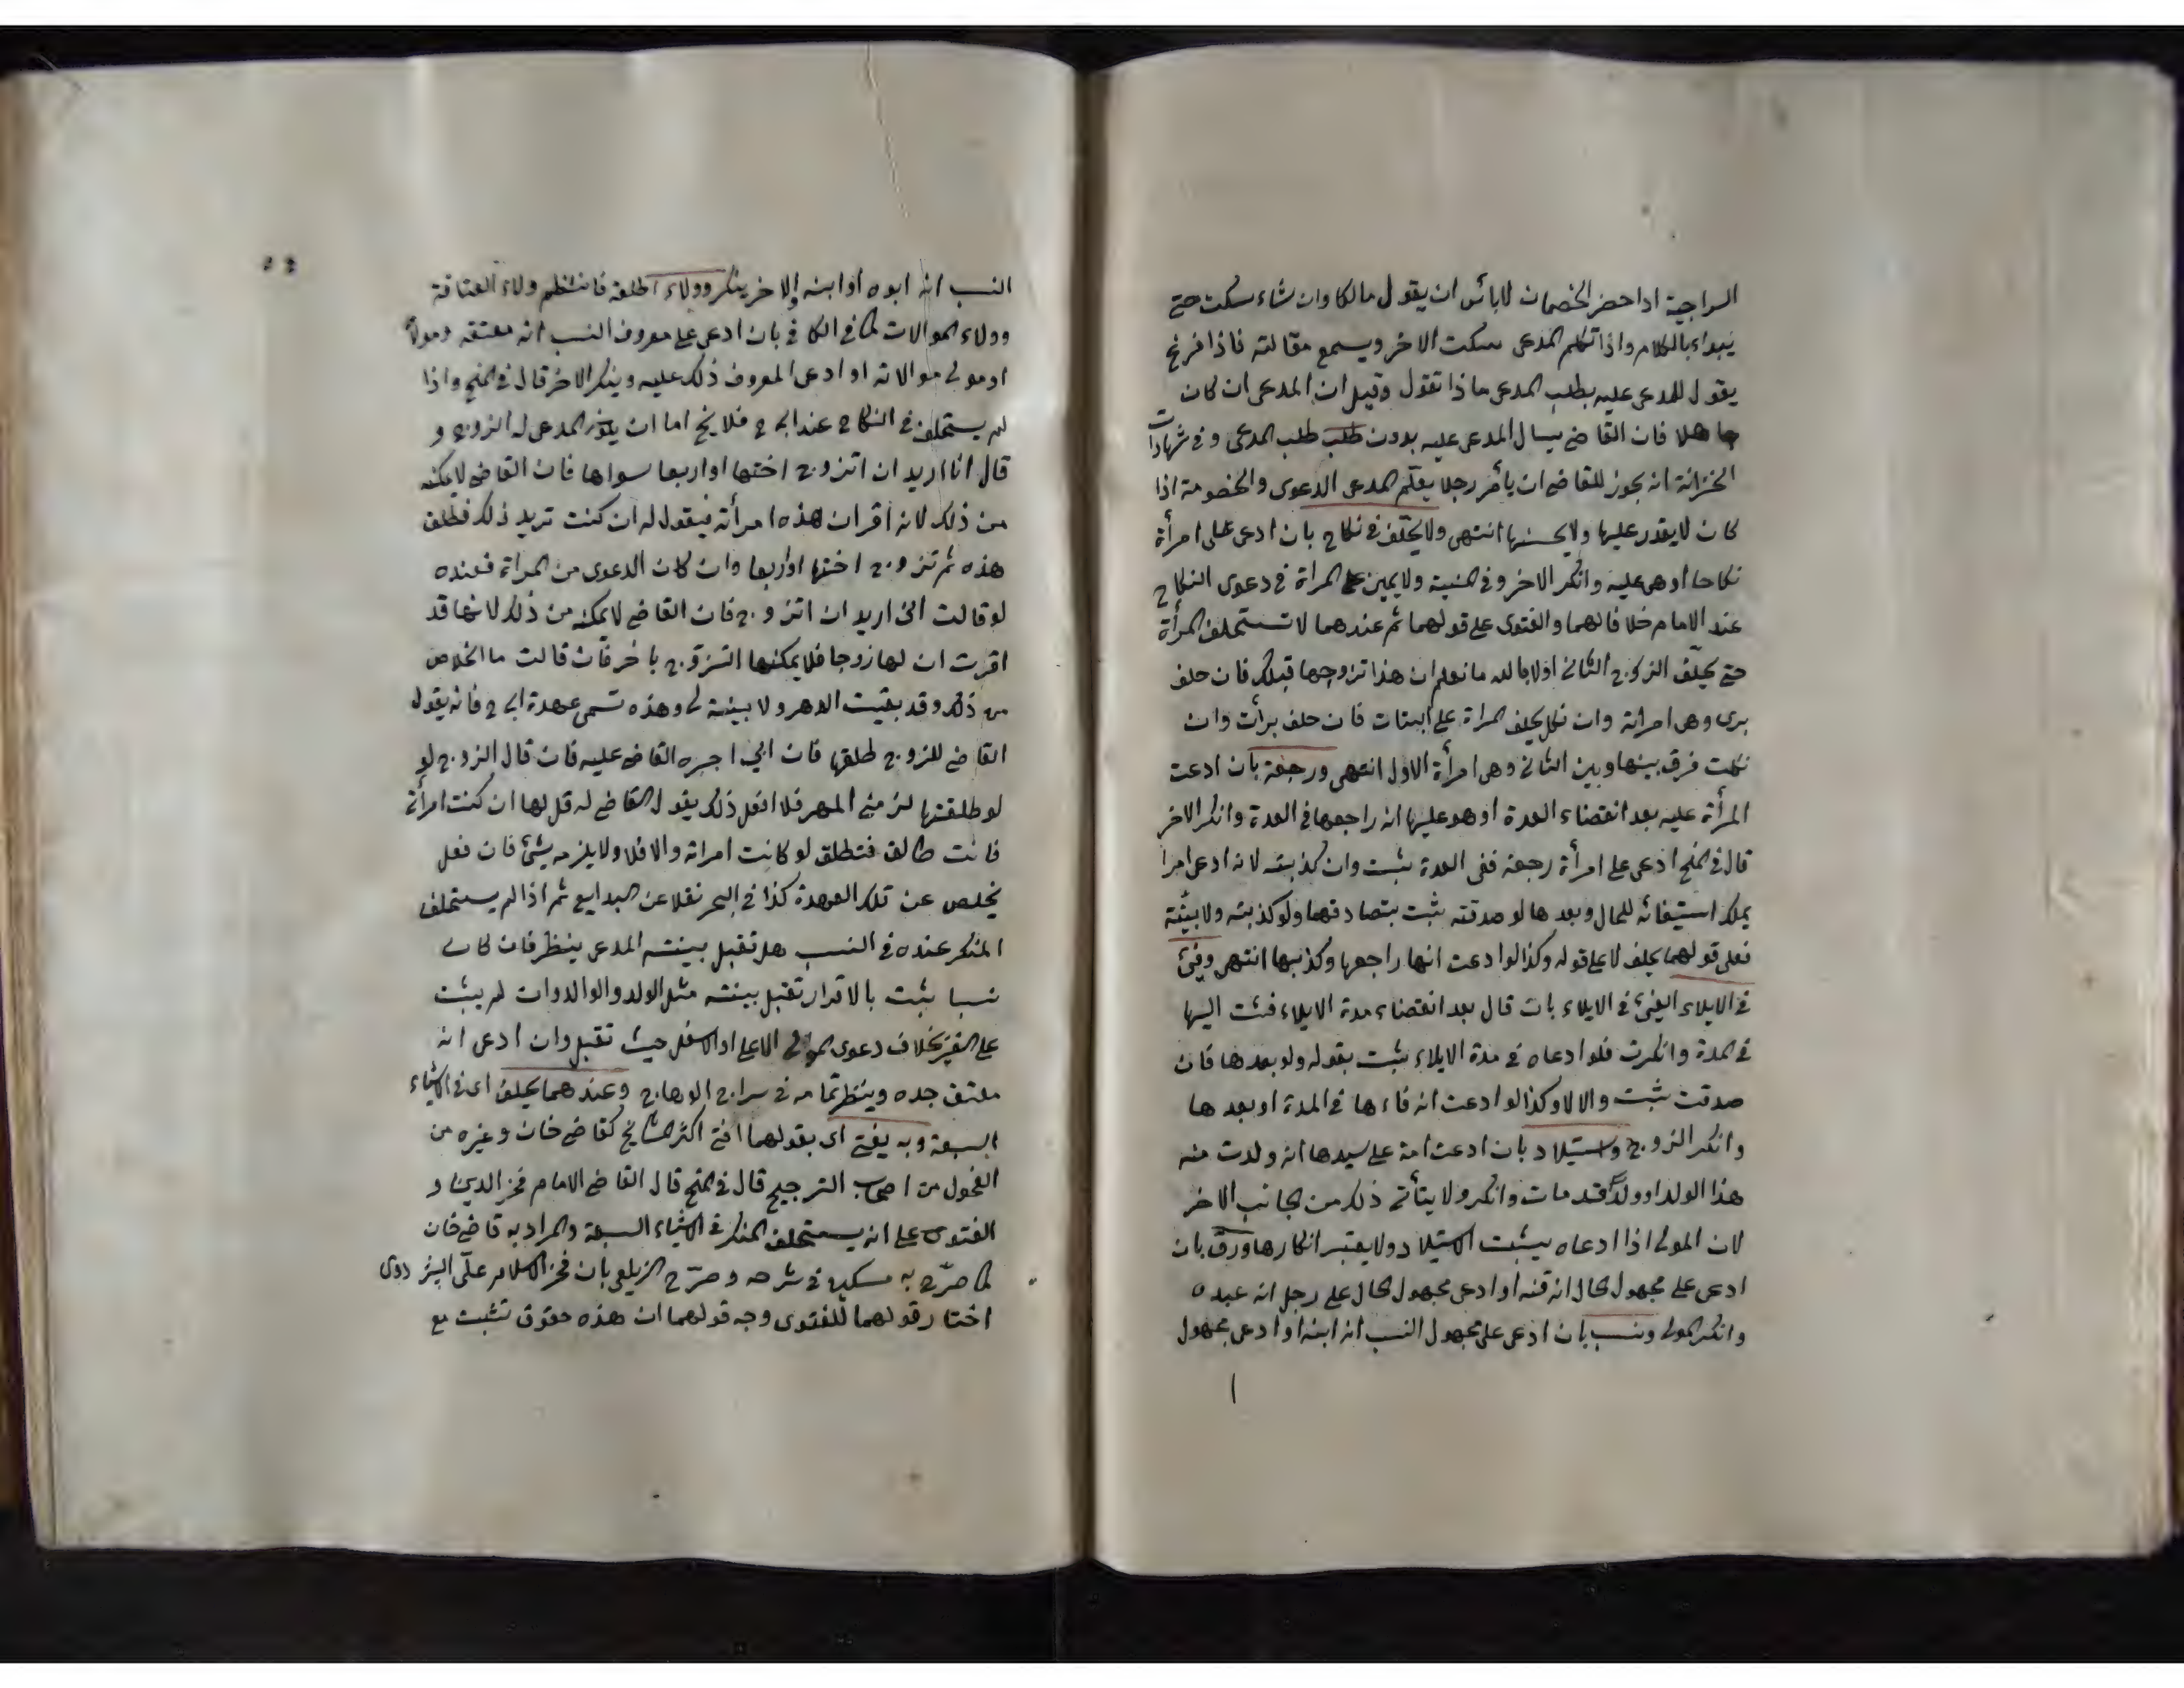 السراجية اذا حضر الخصمان لا بأس ان يقول مالكما وان شاء سكت حتى
يبداء بالكلام واذا تكلم المدعى سكت الاخر ويسمع مقالته فاذا فرغ
يقول للمدعى عليه بطلب المدعى ماذا تقول وقيل ان المدعى ان كان
جاهلا فان القاضى يسال المدعى عليه بدون طلب طلب المدعى وفى شهادات
الخزانة انه يجوز للقاضى ان يأمر رجلا يعلّم المدعى الدعوى والخصومة اذا
كان لا يقدر عليها ولا يحسنها انتهى ولا يحلّف فى نكاح بان ادعى على امرأة
نكاحا او هى عليه وانكر الاخر وفى المنية ولا يمين على المراة فى دعوى النكاح
عند الامام خلافا لهما والفتوى على قولهما ثم عندهما لا تستحلف المرأة
حتى يحلّف الزوج الثانى اولا بالله ما نعلم ان هذا تزوجها قبلك فان حلف
برى وهى امراته وان نكل يحلف المراة على البتات فان حلف برأت وان
نكلت فرق بينها وبين الثانى وهى امرأة الاول انتهى ورجعة بان ادعت
المرأة عليه بعد انقضاء العدة او هو عليها انه راجعها فى العدة وانكر الاخر
قال فى المنح ادعى على امرأة رجعة ففى العدة يثبت وان كذبته لانه ادعى امرا
يملك استيفائه للحال وبعدها لو صدقته يثبت بتصادقهما ولو كذبته ولا بيّنة
فعلى قولهما يحلف لا على قوله وكذا لو ادعت انها راجعها وكذبها انتهى وفئ
فى الايلاء الفئ فى الايلاء بان قال بعد انقضاء مدة الايلاء فئت اليها
فى المدة وانكرت فلو ادعاه فى مدة الايلاء يثبت بقوله ولو بعدها فان
صدقت يثبت والا لا وكذا لو ادعت انه فاءها فى المدة او بعدها
وانكر الزوج واستيلاد بان ادعت امة على سيدها انه ولدت منه
هذا الولد او ولدا قد مات وانكر ولا يتأتى ذلك من الجانب الاخر
لان المولى اذا ادعاه يثبت الاستيلاد ولا يعتبر انكارها ورقّ بان
ادعى على مجهول الحال انه قنه او ادعى مجهول الحال على رجل انه عبده
وانكر المولى ونسب بان ادعى على مجهول النسب انه ابنه او ادعى مجهول
النسب انه ابوه او ابنه والاخر ينكر وولاء اطلقه فانتظم ولاء العتاقة
وولاء الموالات كما فى الكافى بان ادعى على معروف النسب انه معتقه ومولاه
او مولى موالاته او ادعى المعروف ذلك عليه وينكر الاخر قال فى المنح واذا
لم يستحلف فى النكاح عند ابى ح فلا يخ اما ان يكون المدعى له الزوج و
قال انا اريد ان اتزوج اختها او اربعا سواها فان القاضى لا يمكنه
من ذلك لانه اقر ان هذه امرأته فيقول له ان كنت تريد ذلك فطلق
هذه ثم تزوج اختها او اربعا وان كان الدعوى من المراة فعنده
لو قالت انى اريد ان اتزوج فان القاضى لا يمكنه من ذلك لانها قد
اقرت ان لها زوجا فلا يمكنها التزوّج باخر فان قالت ما الخلاص
من ذلك وقد بقيت الدهر ولا بينة لى وهذه تسمى عهدة ابى ح فانه يقول
القاضى للزوج طلقها فان ابى اجبره القاضى عليه فان قال الزوج لو
لو طلقتها لزمنى المهر فلا افعل ذلك يقول القاضى له قل لها ان كنت امرأتى
فانت طالق فتطلق لو كانت امراته والا فلا ولا يلزمه شئ فان فعل
يخلص عن تلك العهدة كذا فى البحر نقلا عن البدايع ثم اذا لم يستحلف
المنكر عنده فى النسب هل تقبل بينته المدعى ينظر فان كان
نسبا يثبت بالاقرار تقبل بينته مثل الولد والوالد وان لم يثبت
على الغير بخلاف دعوى المولى الاعلى او الاسفل حيث تقبل وان ادعى انه
معتق جده وينظر تمامه فى سراج الوهاج وعندهما يحلف اى فى الاشياء
السبعة وبه يفتى اى بقولهما افتى اكثر المشايخ كقاضى خان وغيره من
الفحول من اصحاب الترجيح قال فى المنح قال القاضى الامام فخر الدين و
الفتوى على انه يستحلف المنكر فى الاشياء السبعة والمراد به قاضى خان
كما صرّح به مسكين فى شرحه وصرّح الزيلعى بان فخر الاسلام على البزدوى
اختار قولهما للفتوى وجه قولهما ان هذه حقوق تثبت مع